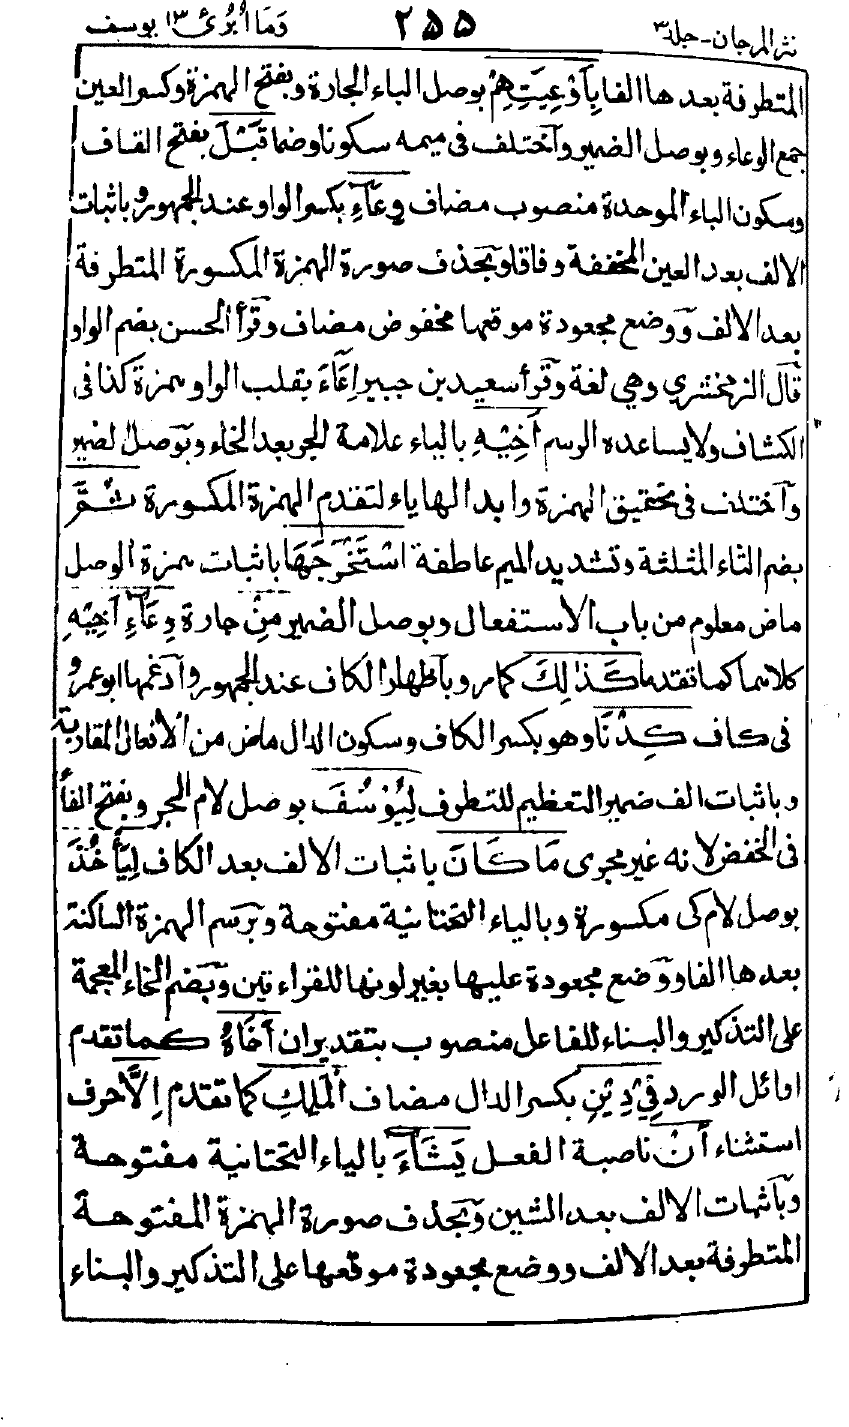 نثر المرجان - جلد ۳ ۲۵۵ وَمَا أُبَرِّئُ ۱۳ يوسف
المتطرفة بعدها الفا بِأَوْعِيَتِهِمْ بوصل الباء الجارة وبفتح الهمزة وكسر العين
جمع الوعاء وبوصل الضمير وآختلف فى ميمه سكونا وضما قَبْلَ بفتح القاف
وسكون الباء الموحدة منصوب مضاف وِعَآءِ بكسر الواو عند الجمهور وباثبات
الالف بعد العين المخففة وفاقا وبحذف صورة الهمزة المكسورة المتطرفة
بعد الالف ووضع مجعودة موقعها مخفوض مضاف وقرأ الحسن بضم الواو
قال الزمخشري وهي لغة وقرأ سعيد بن جبير إِعَآءَ بقلب الواو همزة كذا فى
الكشاف ولا يساعده الرسم أَخِيْهِ بالياء علامة للجر بعد الخاء وبوصل الضمير
وآختلف فى تحقيق الهمزة وابدالها ياء لتقدم الهمزة المكسورة ثُمَّ
بضم الثاء المثلثة وتشديد الميم عاطفة اسْتَخْرَجَهَا باثبات همزة الوصل
ماض معلوم من باب الاستفعال وبوصل الضمير مِنْ جارة وِعَآءِ أَخِيْهِ
كلاهما كما تقدما كَذٰلِكَ كما مر وبآظهار الكاف عند الجمهور وآدغمها ابو عمرو
فى كاف كِدْنَا وهو بكسر الكاف وسكون الدال ماض من الافعال المقاربة
وباثبات الف ضمير التعظيم للتطرف لِيُوْسُفَ بوصل لام الجر وبفتح الفاء
فى الخفض لانه غير مجرى مَا كَانَ باثبات الالف بعد الكاف لِيَأْخُذَ
بوصل لام كى مكسورة وبالياء التحتانية مفتوحة وبرسم الهمزة الساكنة
بعدها الفا ووضع مجعودة عليها بغير لونها للقراءتين وبضم الخاء المعجمة
على التذكير والبناء للفاعل منصوب بتقدير ان أَخَاهُ كما تقدم
اوائل الورد فِيْ دِيْنِ بكسر الدال مضاف الْمَلِكِ كما تقدم إِلَّا حرف
استثناء أَنْ ناصبة الفعل يَشَآءَ بالياء التحتانية مفتوحة
وبآثبات الالف بعد الشين وبحذف صورة الهمزة المفتوحة
المتطرفة بعد الالف ووضع مجعودة موقعها على التذكير والبناء